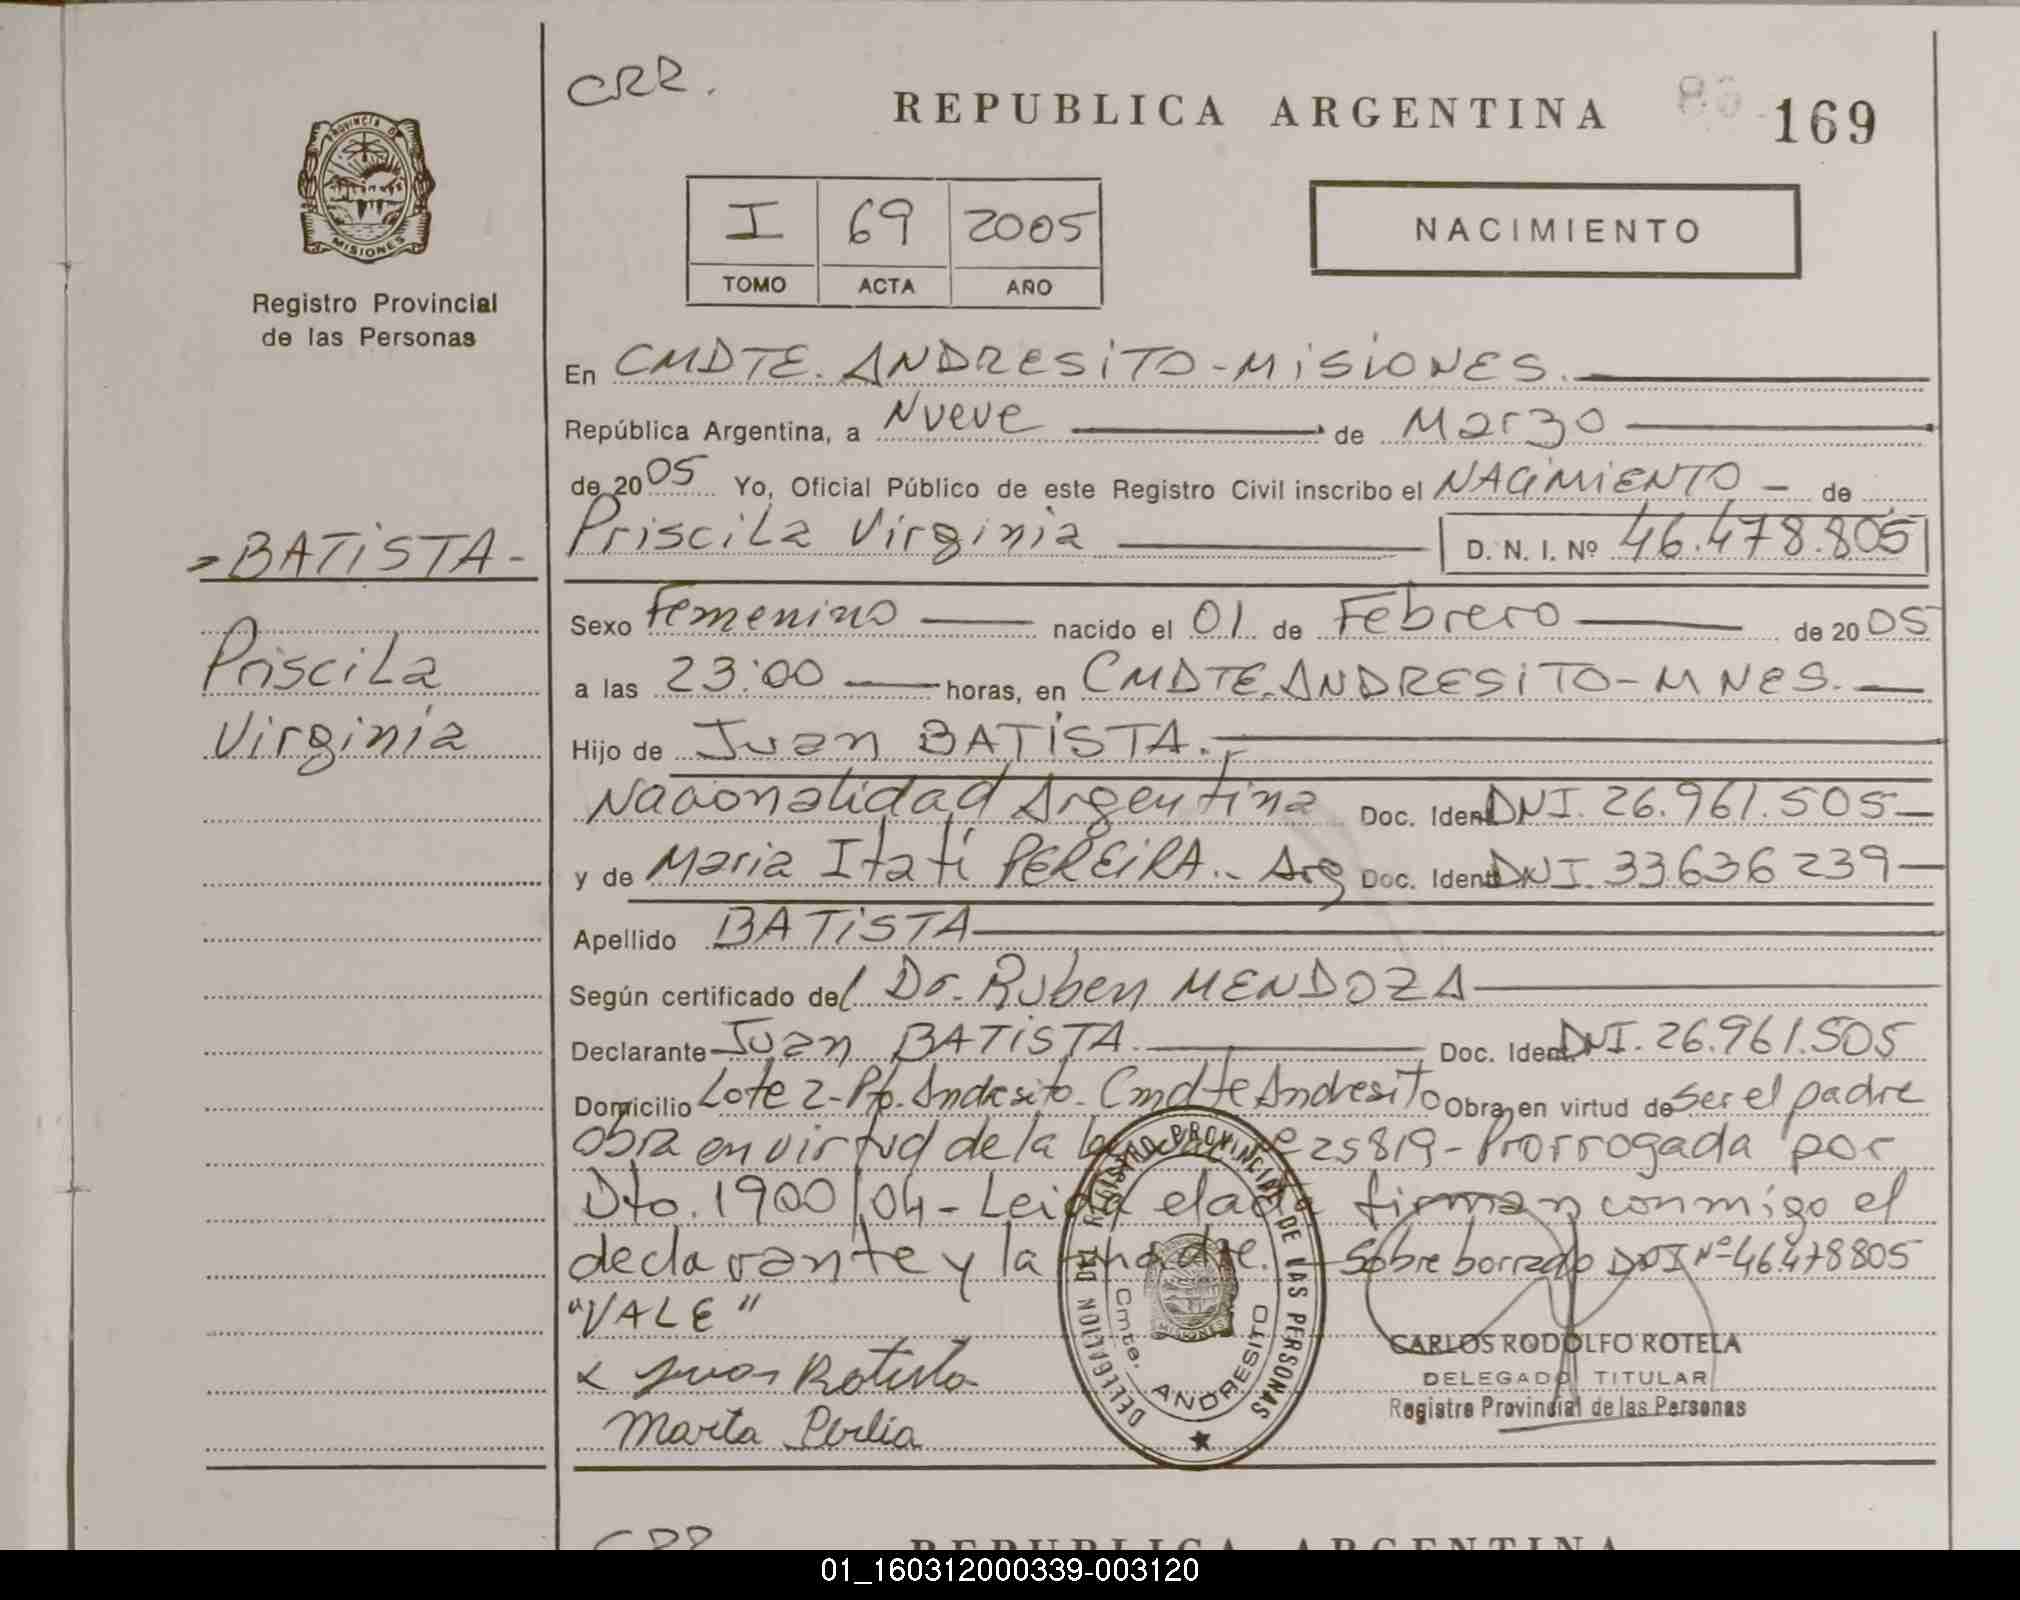 CRR.
REPUBLICA ARGENTINA
169
PROVINCIA DE
MISIONES
I 69 2005
TOMO ACTA AÑO
NACIMIENTO
Registro Provincial
de las Personas
En CMDTE. ANDRESiTO-MiSiONES.
República Argentina, a Nueve de Marzo
de 2005 Yo, Oficial Público de este Registro Civil inscribo el NACiMiENTO - de
-BATiSTA-
Priscila Virginia D. N. I. Nº 46.478.805
Priscila
Virginia
Sexo Femenino nacido el 01 de Febrero de 2005
a las 23:00 horas, en CMDTE. ANDRESiTO-MNES.
Hijo de Juan BATiSTA.
Nacionalidad Argentina Doc. Ident DNI. 26.961.505
y de Maria Itatí PEREiRA.. Arg Doc. Ident DNI. 33.636239
Apellido BATiSTA
Según certificado del Dr. Ruben MENDOZA
Declarante Juan BATiSTA. Doc. Ident DNI. 26.961.505
Domicilio Lote 2-Pto. Andresito. Cmdte Andresito Obra en virtud de ser el padre
obra en virtud de la 25819-Prorrogada por
Dto. 1900/04-Leida el acta firman conmigo el
declarante y la madre. Sobre borrado DNI Nº 46.478805
"VALE"
x Juan Batista
CARLOS RODOLFO ROTELA
DELEGADO TITULAR
Registro Provincial de las Personas
Marta
DELEGACION DEL REGISTRO PROVINCIAL DE LAS PERSONAS
Cmte. ANDRESITO
MISIONES
CRR
REPUBLICA ARGENTINA
01_160312000339-003120